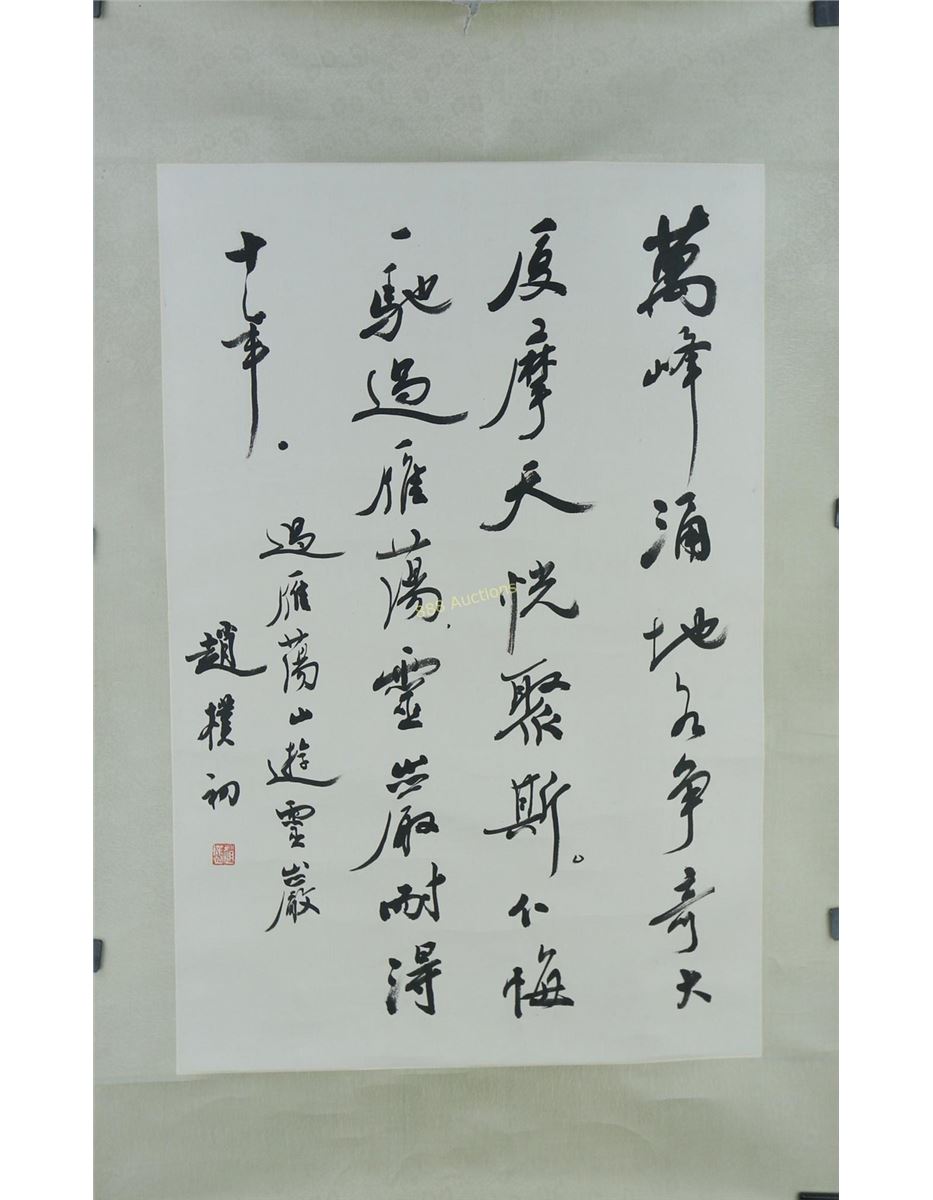 萬峰涌地各爭奇大
厦摩天恍聚斯。不悔
一馳過雁蕩,靈巖耐得
十年.
過雁蕩山遊靈巖
趙樸初
888 Auctions